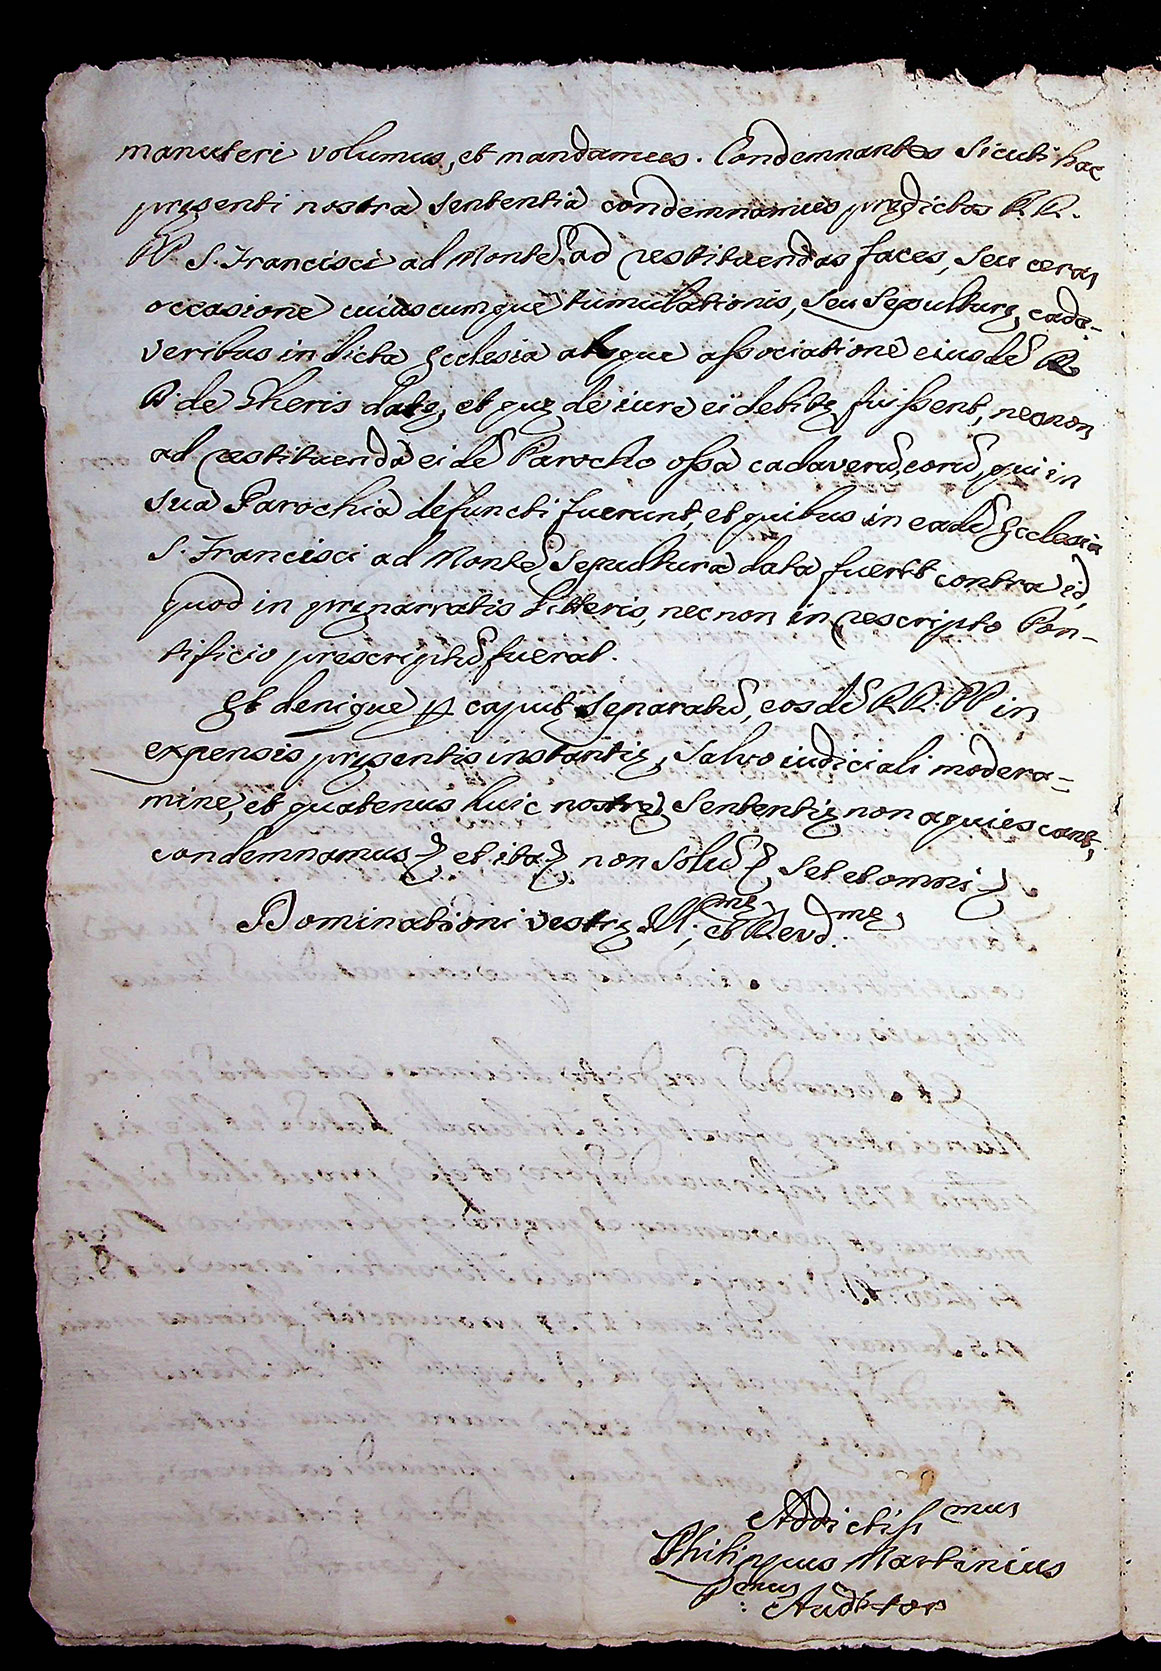 manuteri volumus, et mandamus. Condemnantes sicuti hac
pręsenti nostra sententia condemnamus prędictos R.R.
PP. S. Francisci ad Monte͂ ad restituendas faces, seu ceras
occasione cuiuscumque tumulationis, seu sepulturę, cada-
veribus in dicta Ecclesia absque associatione eiusde͂ R.
P. de Theris datę, et quę de iure ei debitę fuissent, necnon
ad restituenda eide͂ Parocho ossa cadaveru͂ eoru͂, qui in
sua Parochia defuncti fuerunt, et quibus in eade͂ Ecclesia
S. Francisci ad Monte͂ sepultura data fuerit contra id,
quod in pręnarratis litteris, necnon in rescripto Pon-
tificio prescriptu͂ fuerat.
Et denique ꝑ caput separatu͂, eosde͂ RR: PP in
expensis pręsentis instantię, salvo iudiciali modera-
mine, et quatenus huic nostrę sententię non aquiescant,
condemnamus et ita non solu͂ set et omni
Dominationi vestrę Ill:mę, et Revd:mę
Addictiss mus
Philippus Martinius
P:mus Auditor